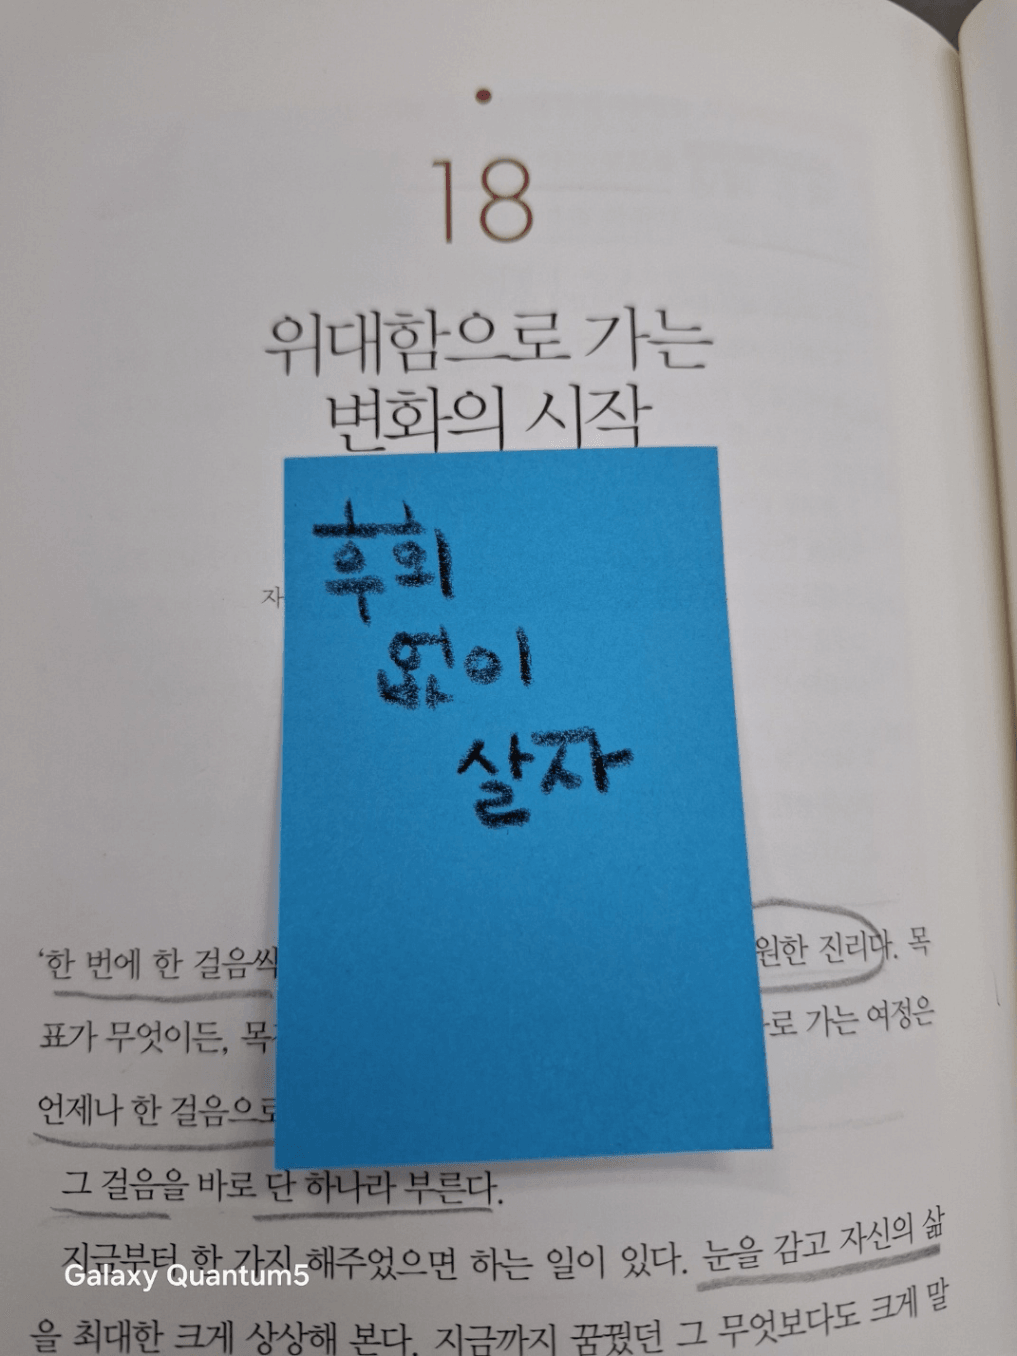 18
위대함으로 가는
변화의 시작
후회
없이
살자
자
'한 번에 한 걸음씩 원한 진리다. 목
표가 무엇이든, 목 로 가는 여정은
언제나 한 걸음으로
그 걸음을 바로 단 하나라 부른다.
지금부터 한 가지 해주었으면 하는 일이 있다. 눈을 감고 자신의 삶
을 최대한 크게 상상해 본다. 지금까지 꿈꿨던 그 무엇보다도 크게 말
Galaxy Quantum5